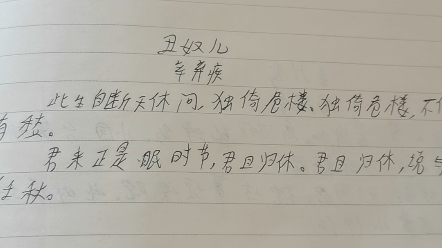 丑奴儿
辛弃疾
此生自断天休问,独倚危楼。独倚危楼,不
有愁。
君来正是眠时节,君且归休。君且归休,说与
秋。